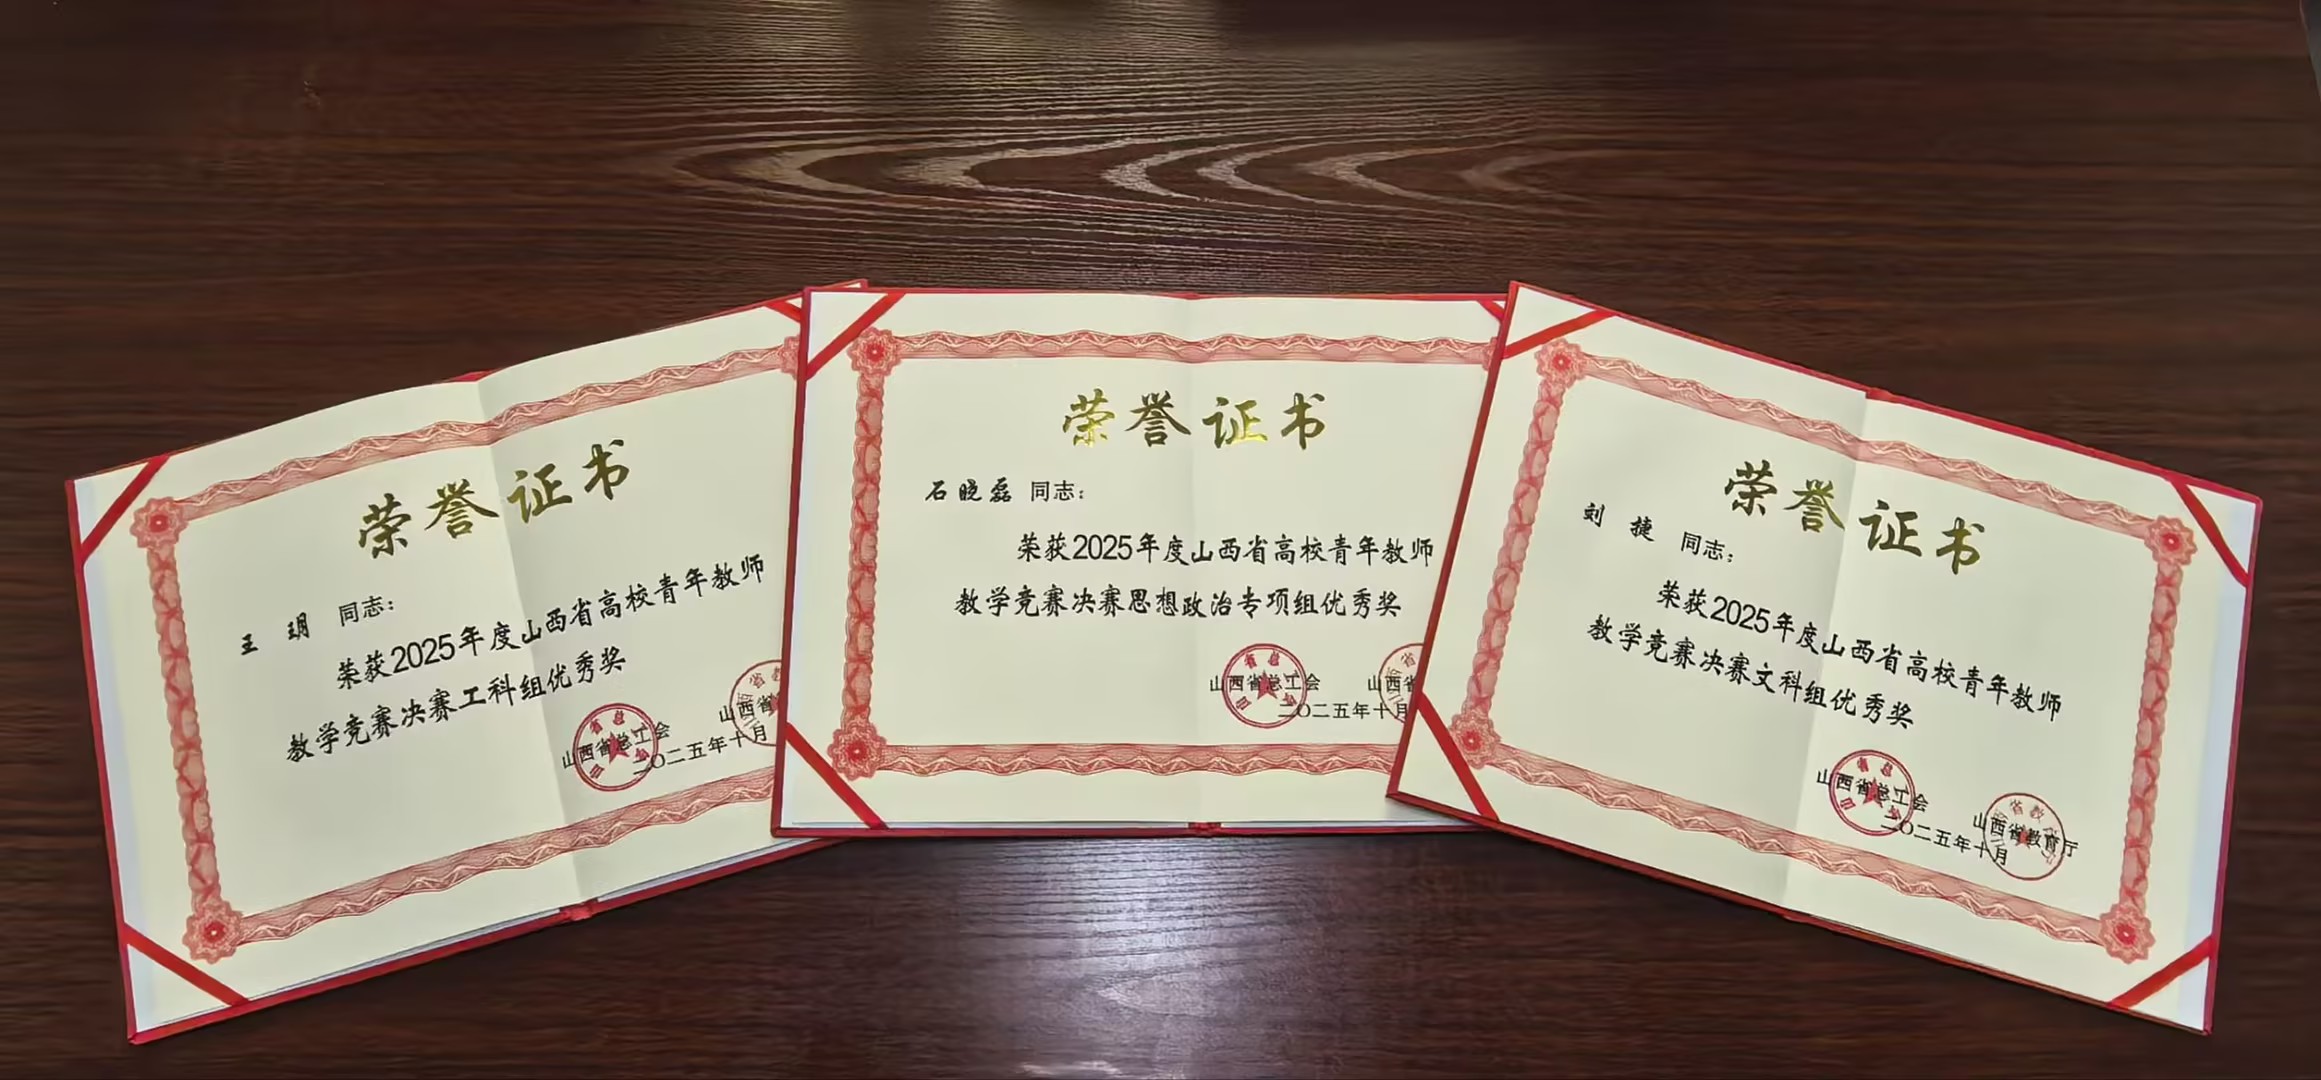 荣誉证书
王玥 同志：
荣获2025年度山西省高校青年教师
教学竞赛决赛工科组优秀奖
山西省总工会 山西省
二〇二五年十月
荣誉证书
石晓磊 同志：
荣获2025年度山西省高校青年教师
教学竞赛决赛思想政治专项组优秀奖
山西省总工会 山西省
二〇二五年十月
荣誉证书
刘捷 同志：
荣获2025年度山西省高校青年教师
教学竞赛决赛文科组优秀奖
山西省总工会 山西省教育厅
二〇二五年十月